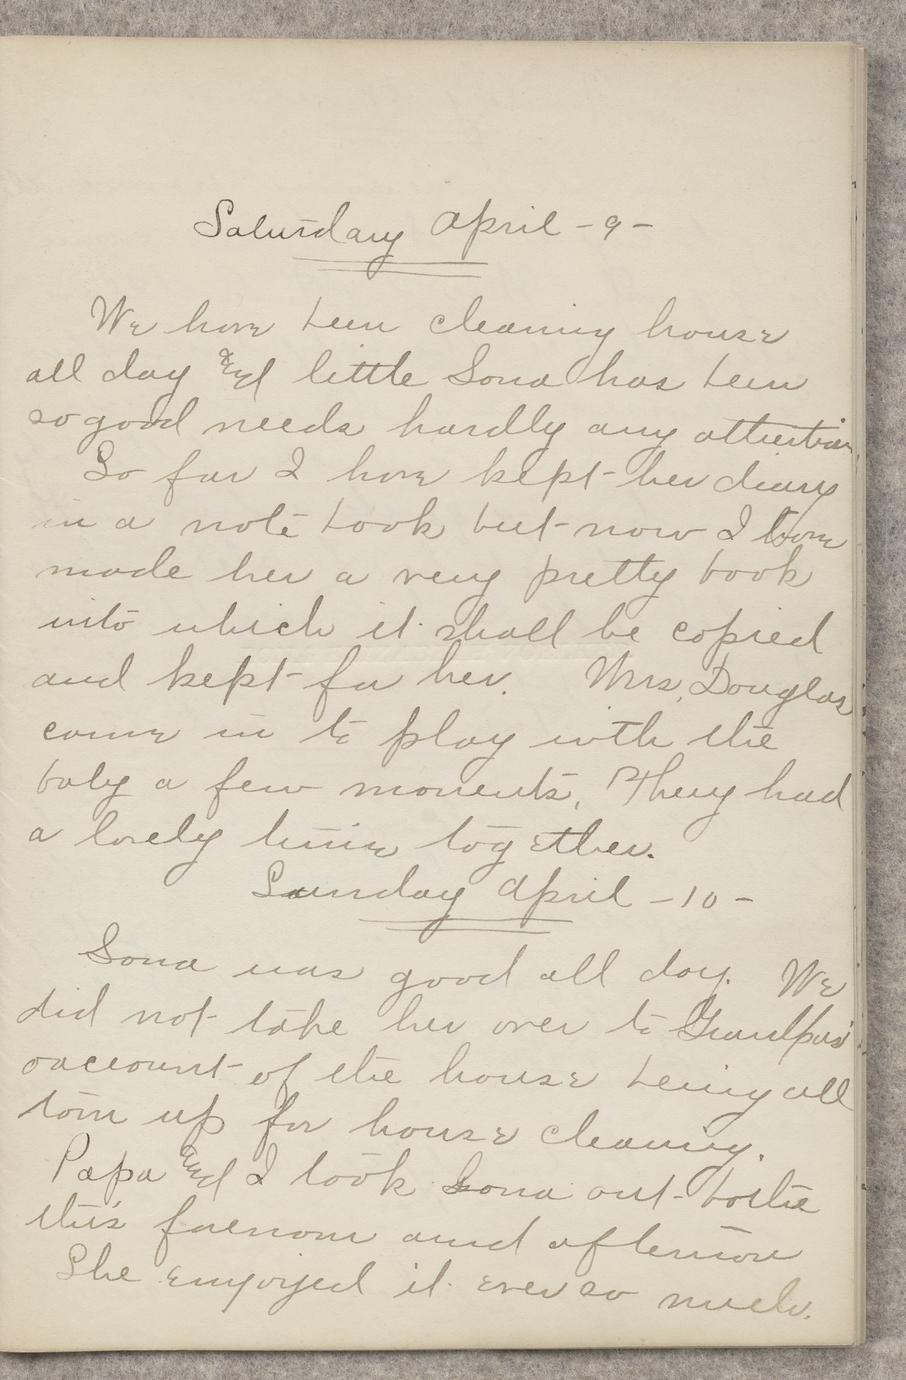 Saturday April - 9 -
We have been cleaning house
all day and little Sona has been
so good needs hardly any attention
So far I have kept her diary
in a note book but now I have
made her a very pretty book
into which it shall be copied
and kept for her. Mrs. Douglas
came in to play with the
baby a few moments. They had
a lovely time together.
Sunday April - 10 -
Sona was good all day. We
did not take her over to Grandpas'
oaccount of the house being all
torn up for house cleaning.
Papa and I took Sona out bothe
this forenoon and afternoon
She enjoyed it ever so much.